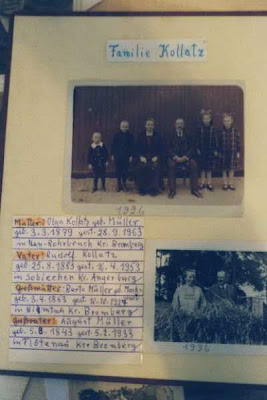 Familie Kollatz
1936
Mutter: Olga Kollatz geb. Müller
geb. 3.3.1879 gest. 28.9.1963
in Kr. Bromberg
Vater: Rudolf Kollatz
geb. 25. 1883 gest. 4.1953
in Kr. Angerburg
Großmutter: Berta Müller geb.
geb. 3.4.1853 gest.
in Kr. Bromberg
Großvater: August Müller
geb. 5. 1843 gest. 5. 1933
in Flötenau Kre Bromberg
1936